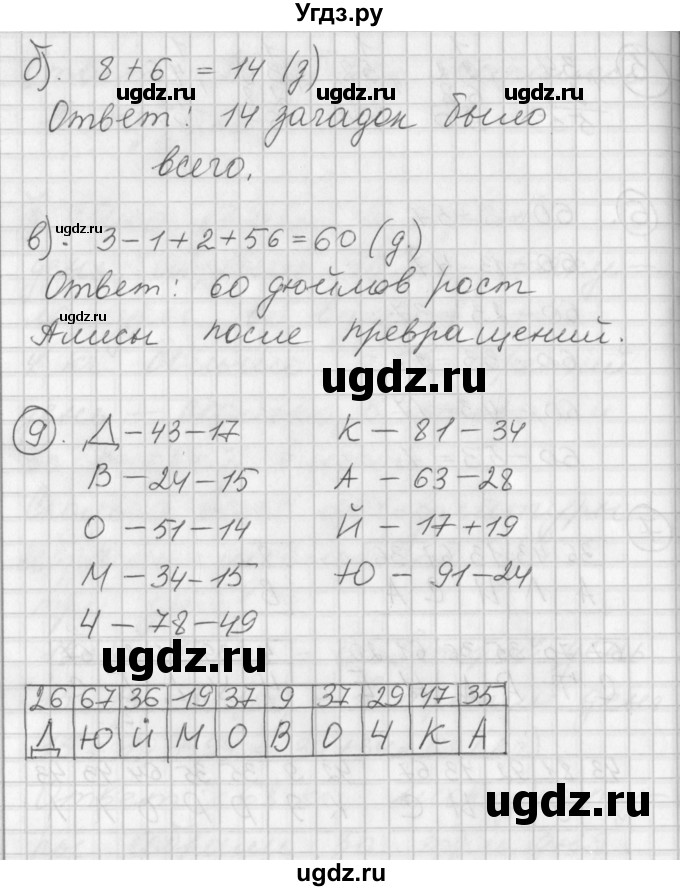 Угдз.ру
б). 8+6 = 14 (з)
ugdz.ru ugdz.ru ugdz.ru
Ответ: 14 загадок было
всего.
ugdz.ru
в). 3-1+2+56=60 (д.)
Ответ: 60 дюймов рост
ugdz.ru
Алисы после превращений.
ugdz.ru
9. Д - 43-17 К - 81-34
В - 24-15 А - 63-28
О - 51-14 Й - 17+19
М - 34-15 Ю - 91-24
Ч - 78-49
ugdz.ru
26 67 36 19 37 9 37 29 47 35
Д Ю Й М О В О Ч К А
ugdz.ru